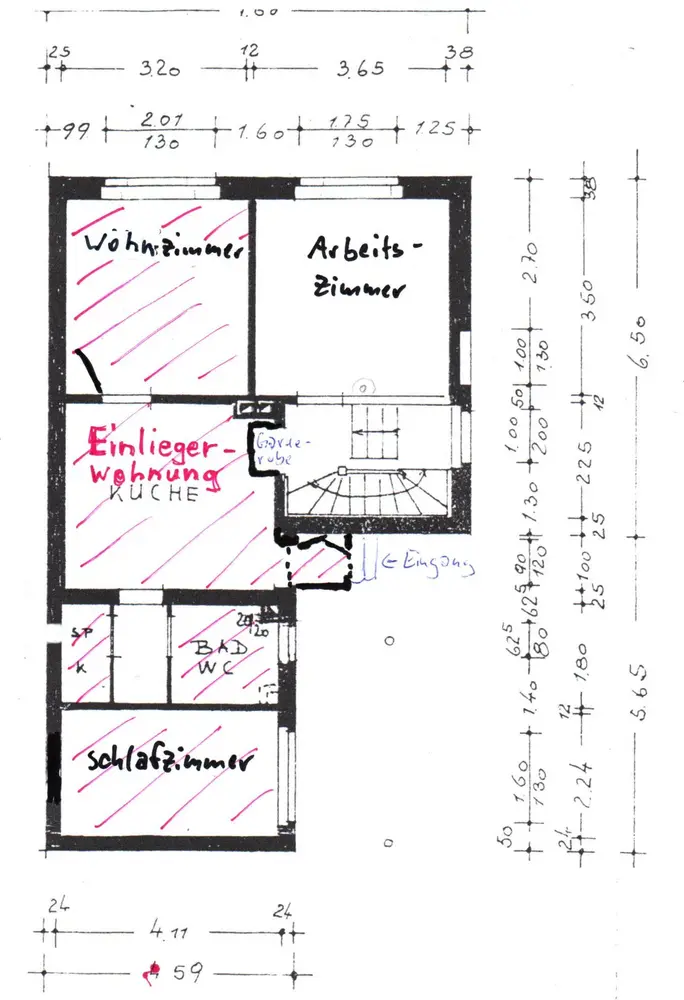 25 3.20 12 3.65 38
99 2.01 1.60 1.75 1.25
130 130
Wohnzimmer
Arbeits-
zimmer
Einlieger-
wohnung
KÜCHE
Garde-
robe
← Eingang
SP
K
20
20
BAD
WC
Schlafzimmer
38
2.70
3.50
6.50
1.00
1.30
50
12
1.00
2.00
2.25
1.30
25
90
1.20
1.00
62⁵
25
62⁵
80
1.80
5.65
1.40
12
1.60
1.30
2.24
50
24
24 24
4.11
4 59